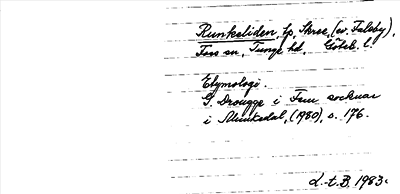 Runkeliden, tp, Skree, (ev. Faleby),
Foss sn, Tunge hd, Göteb. l.
Etymologi.
G. Drougge i Fem socknar
i Munkedal, (1980), s. 176.
d.-t. B. 1983.